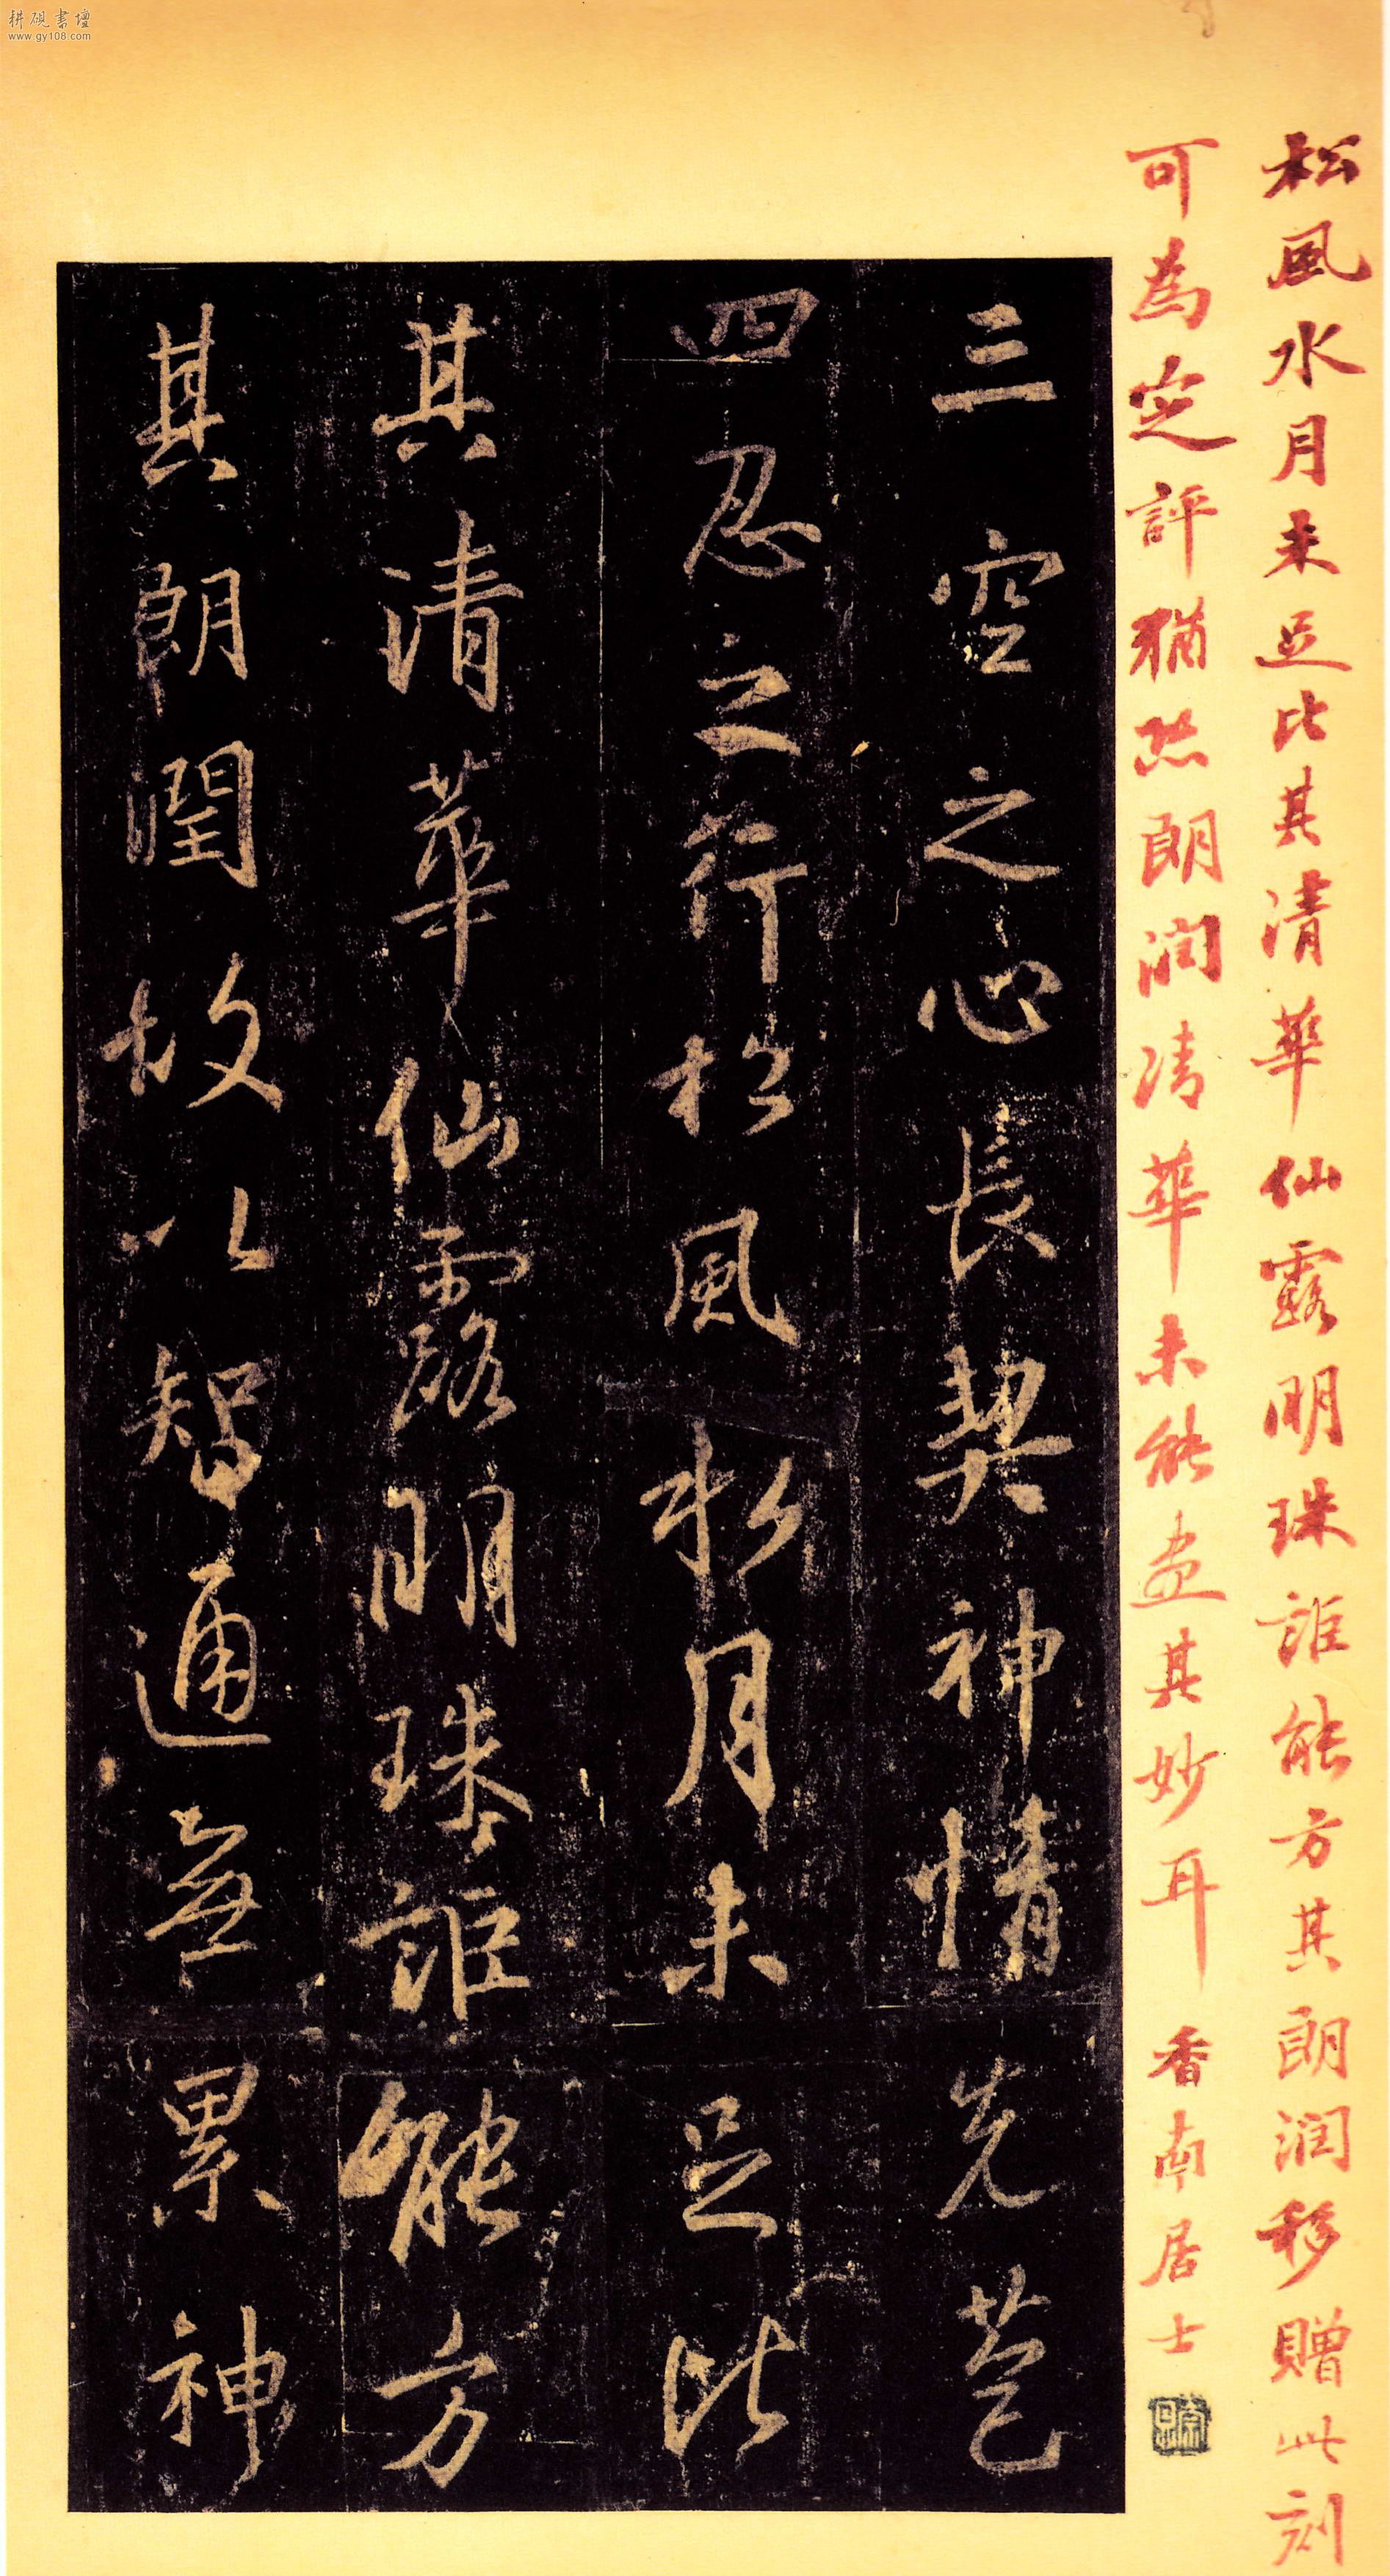 耕砚書壇
www.gy108.com
松風水月未足比其清華仙露明珠詎能方其朗润移贈此刻
可為定評猶然朗润清華未能盡其妙耳 香南居士
三空之心長契神情先苞
四忍之行松風水月未足比
其清華仙露明珠詎能方
其朗潤故以智通無累神